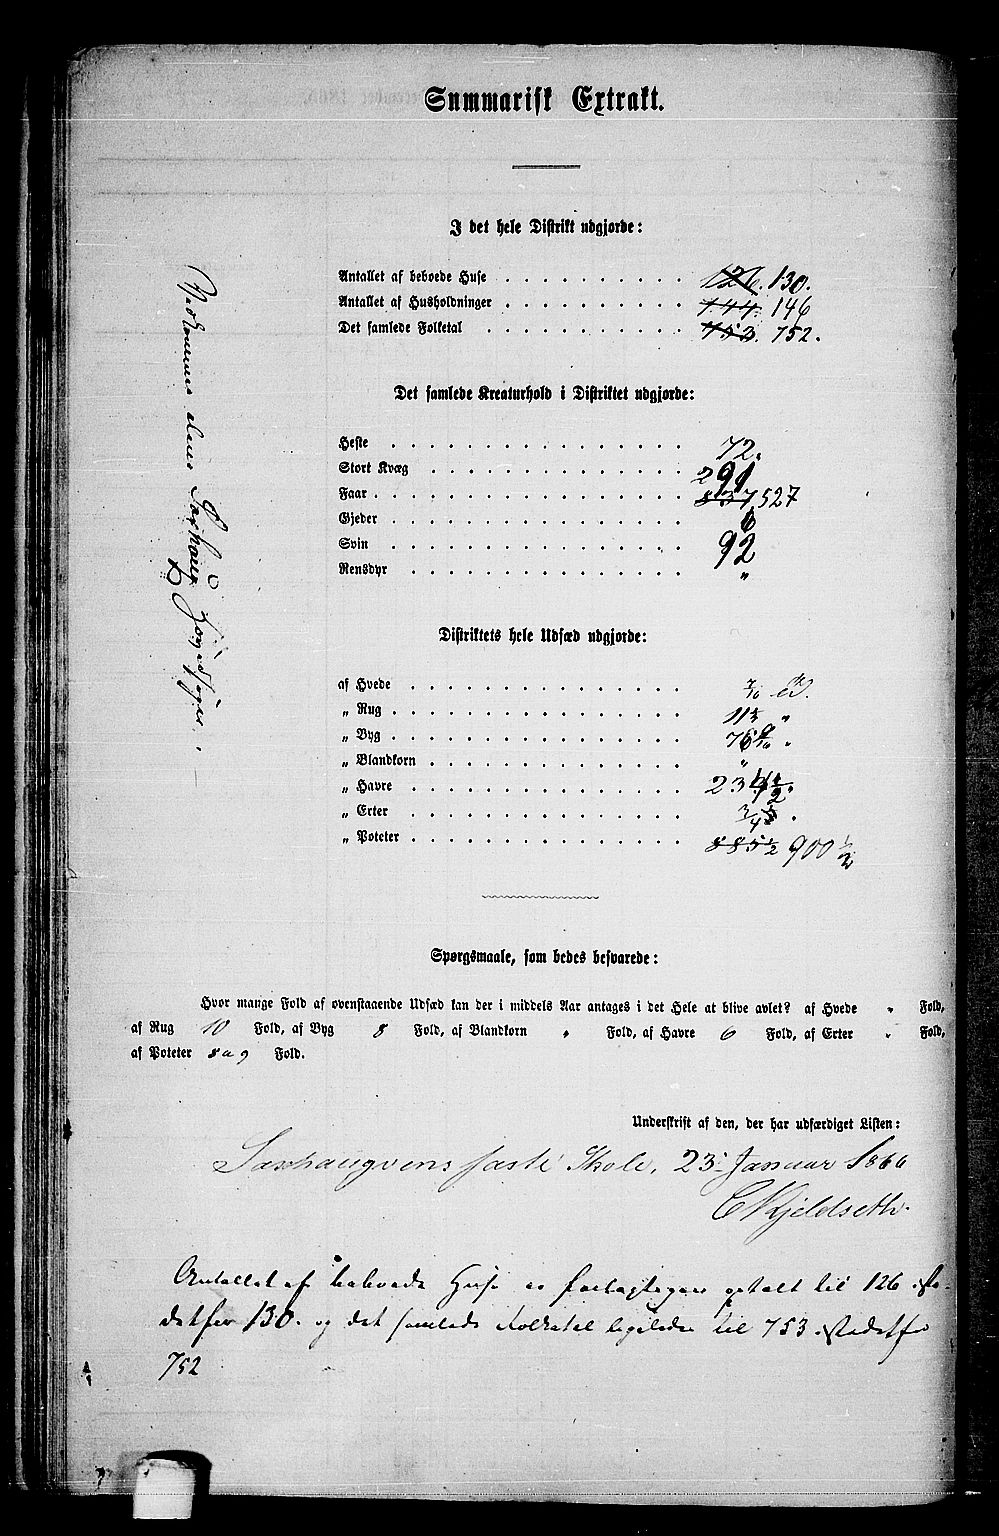 Summarisk Extrakt.
I det hele Distrikt udgjorde:
Antallet af beboede Huse . . . . . . . . . . 126. 130.
Antallet af Husholdninger . . . . . . . . . . 144. 146
Det samlede Folketal . . . . . . . . . . . 753. 752.
Det samlede Kreaturhold i Distriktet udgjorde:
Heste . . . . . . . . . . . . . . . 72.
Stort Kvæg . . . . . . . . . . . . . 291
Faar . . . . . . . . . . . . . . . . 837 527
Gjeder . . . . . . . . . . . . . . . 6
Svin . . . . . . . . . . . . . . . 92
Rensdyr . . . . . . . . . . . . . . "
Distriktets hele Udsæd udgjorde:
af Hvede . . . . . . . . . . . . . .
„ Rug . . . . . . . . . . . . . . . "
„ Byg . . . . . . . . . . . . . . . "
„ Blandkorn . . . . . . . . . . . . . "
„ Havre . . . . . . . . . . . . . .
„ Erter . . . . . . . . . . . . . .
„ Poteter . . . . . . . . . . . . . . 885½ 900½
Spørgsmaale, som bedes besvarede:
Hvor mange Fold af ovenstaaende Udsæd kan der i middels Aar antages i det Hele at blive avlet? af Hvede " Fold,
af Rug 10 Fold, af Byg 8 Fold, af Blandkorn " Fold, af Havre 6 Fold, af Erter " Fold,
af Poteter 8 a 9 Fold.
Underskrift af den, der har udfærdiget Listen:
Saxhaugvens faste Skole, 23 Januar 1866
C Kjeldseth.
Antallet af beboede Huse er opталt til 126 iste-
detfor 130. og det samlede Folketal ligeledes til 753 istedetfor
752